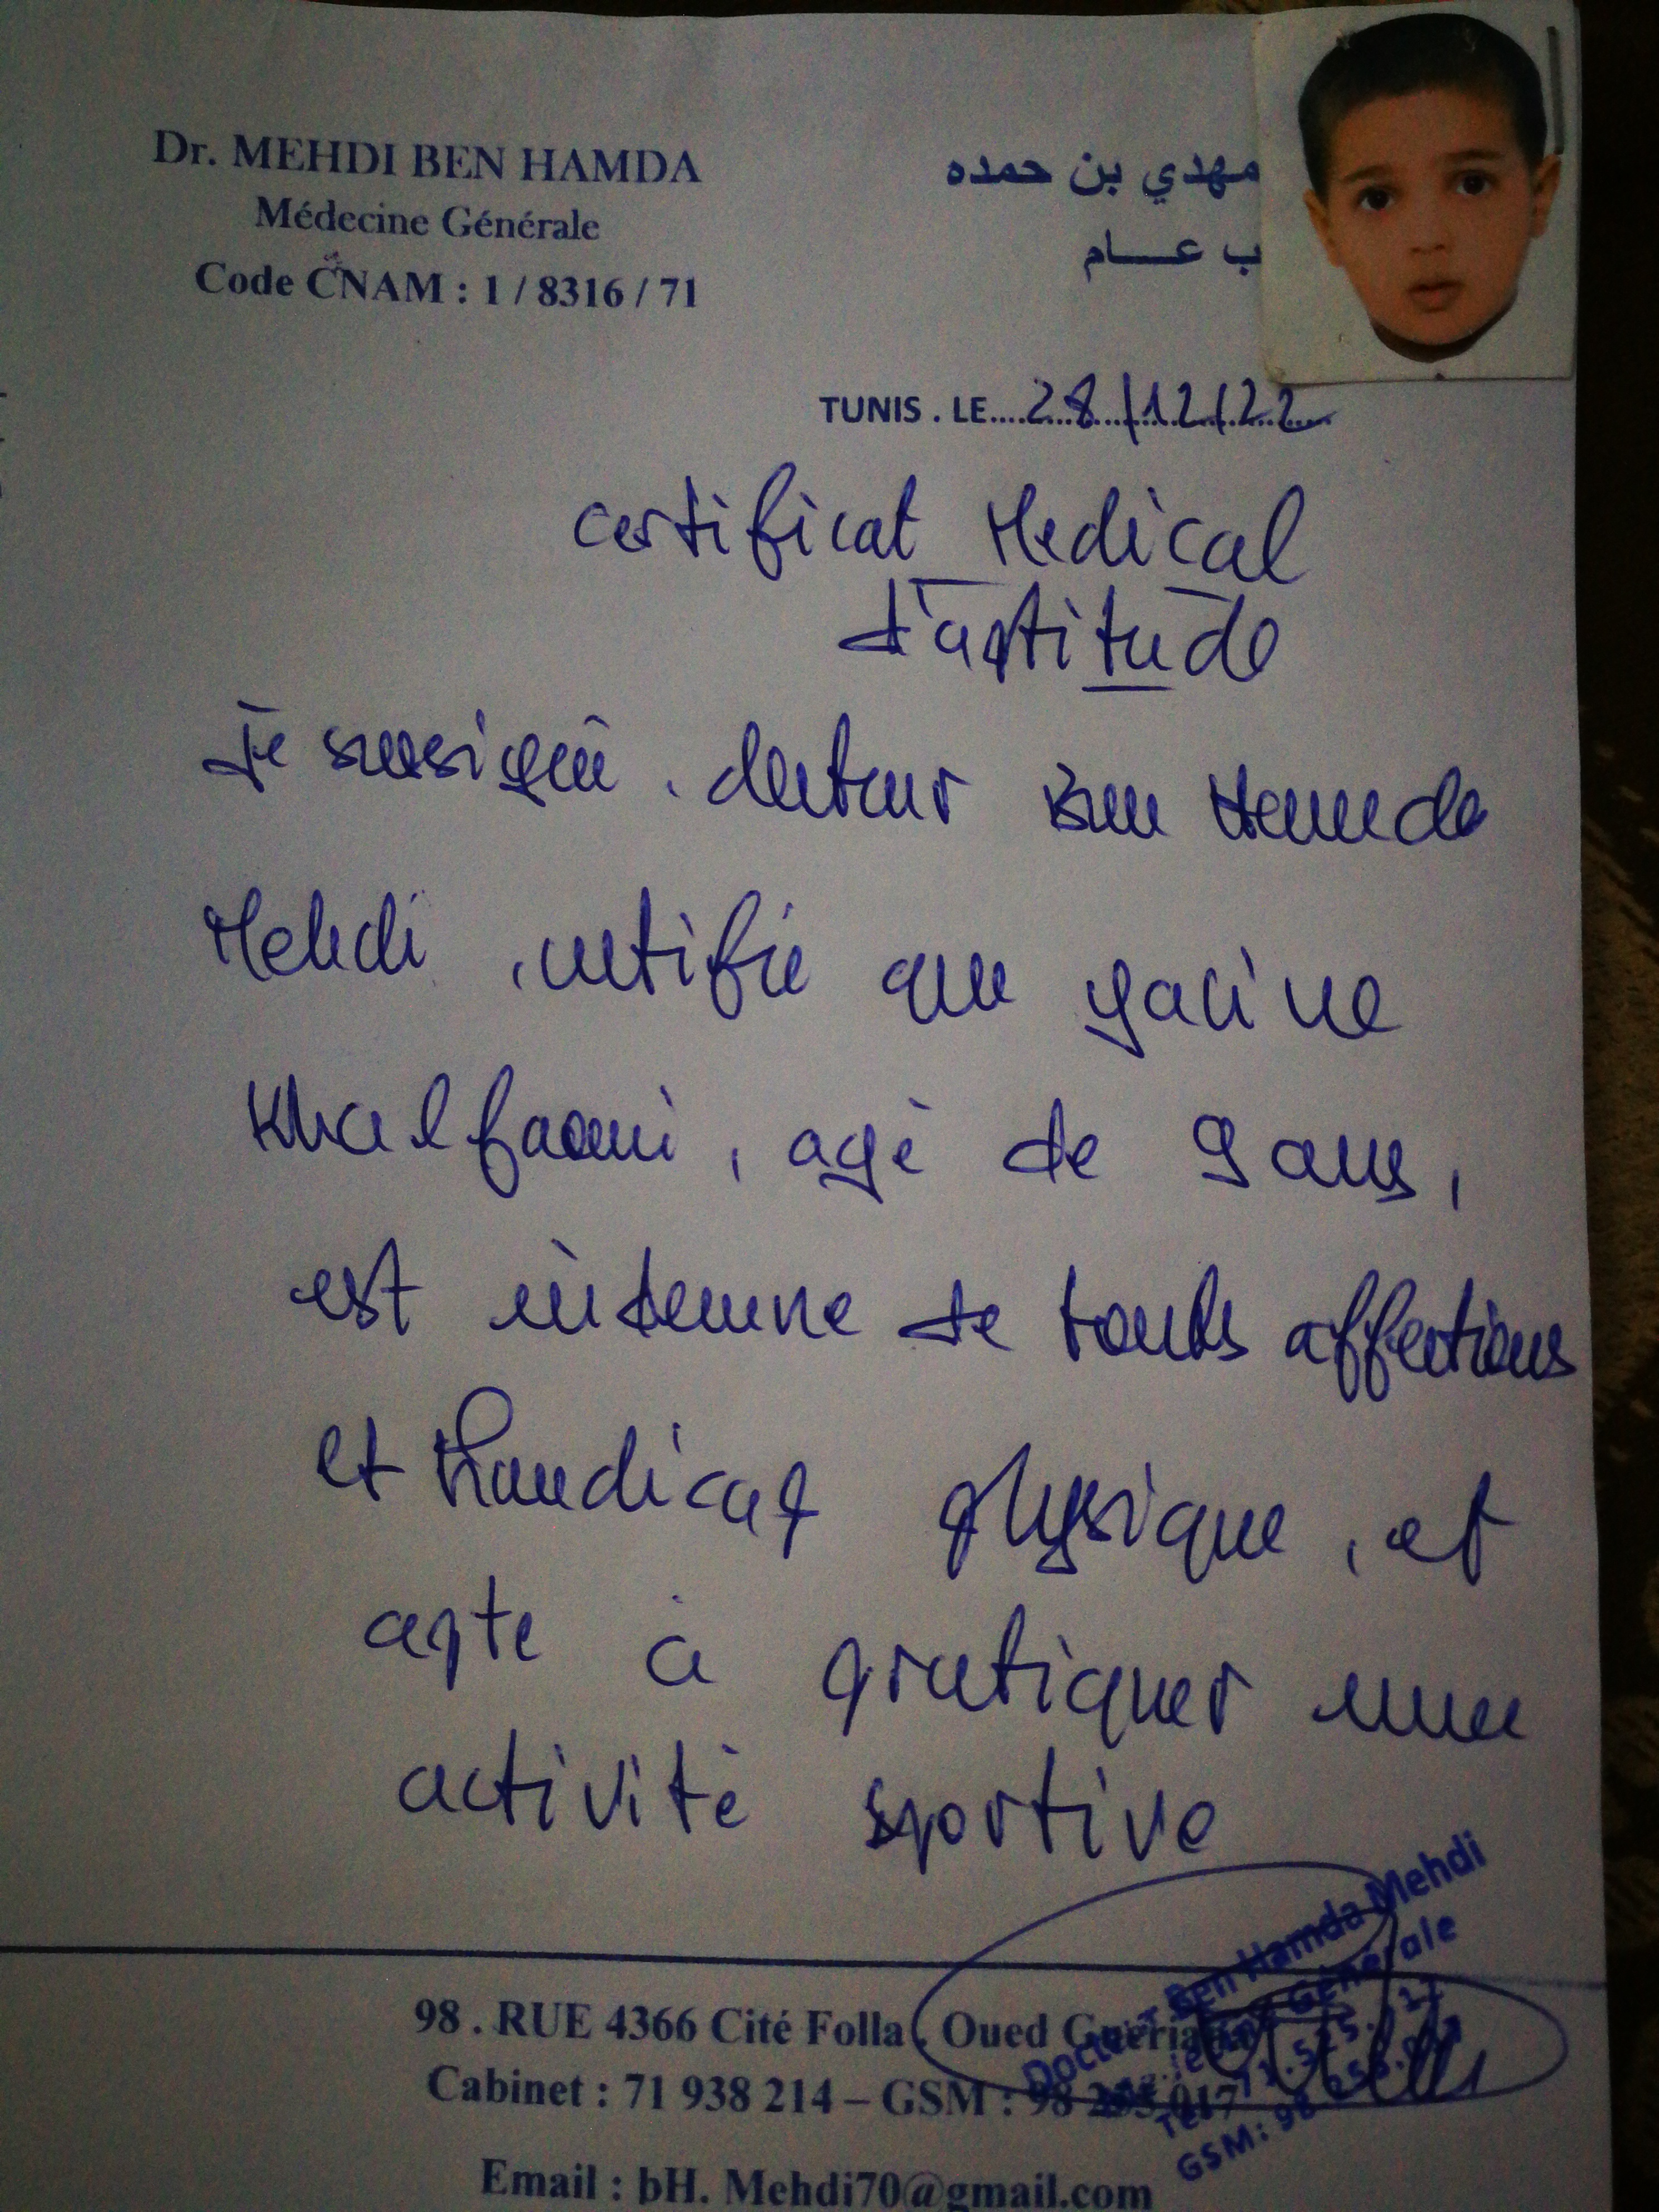 Dr. MEHDI BEN HAMDA
Médecine Générale
Code CNAM : 1 / 8316 / 71
مهدي بن حمده
ب عـــام
TUNIS . LE....28/12/22
certificat Medical
d'aptitude
Je sousigné . docteur Ben Hamda
Mehdi , certifie que yacine
Khalfaoui , agé de 9 ans ,
est indemne de toutes affections
et handicap physique , et
apte à pratiquer une
activité sportive
Docteur Ben Hamda Mehdi
Générale
GSM: 98
98 . RUE 4366 Cité Folla . Oued
Cabinet : 71 938 214 – GSM : 98 017
Email : bH. Mehdi70@gmail.com